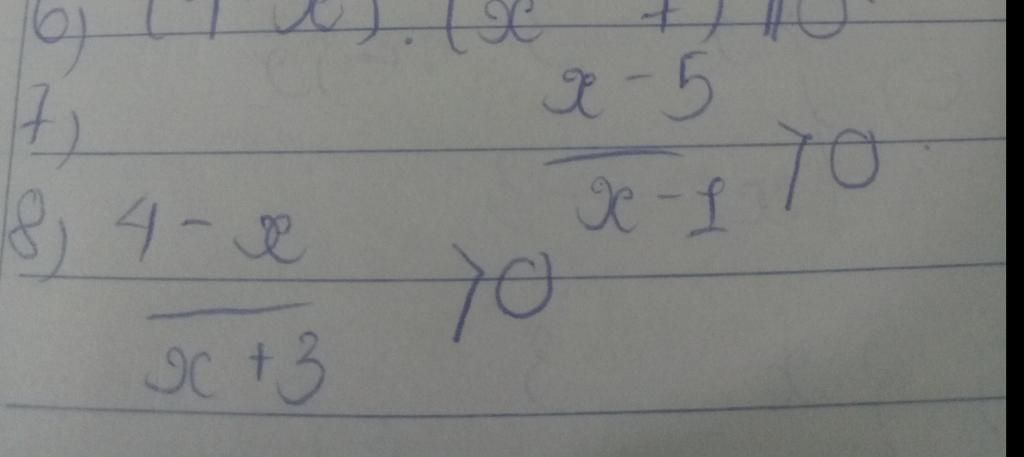 6)
7) x - 5 / x - 1 > 0
8) 4 - x / x + 3 > 0